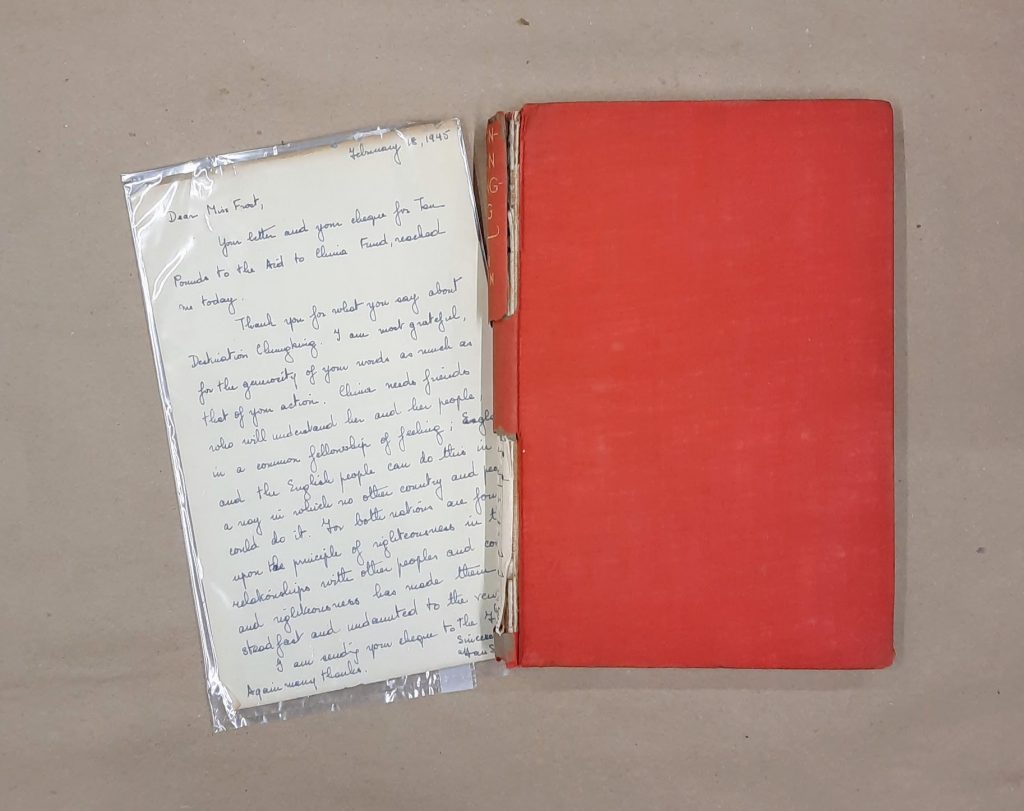 February 18, 1945
Dear Miss Frost,
Your letter and your cheque for Ten
Pounds to the Aid to China Fund, reached
me today.
Thank you for what you say about
Destination Chungking. I am most grateful,
for the generosity of your words as much as
that of your action. China needs friends
who will understand her and her people
in a common fellowship of feeling; Engla
and the English people can do this in
a way in which no other country and peo
could do it. For both nations are foun
upon the principle of righteousness in t
relationships with other peoples and co
and righteousness has made them
steadfast and undaunted to the very
I am sending your cheque to the F
Again many thanks.
Sincere
Han S
N
N
G
S
L
N